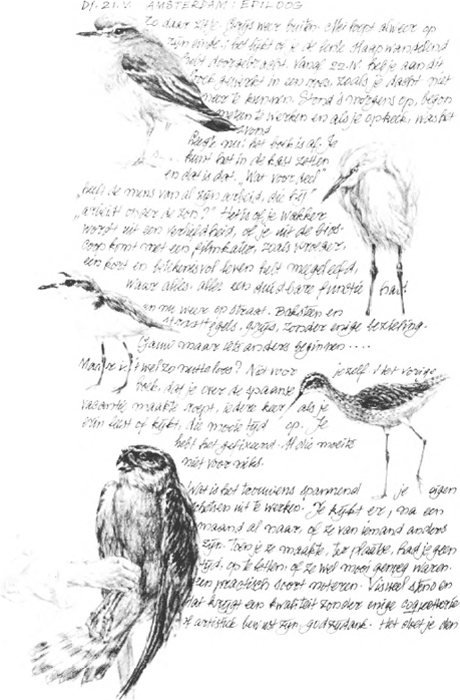 DI. 21. V. AMSTERDAM: EPILOOG
Zo daar zit je. Grijs weer buiten. Mei loopt alweer op
zijn einde. Het lijkt of je de lente slaapwandelend
hebt doorgebracht. Vanaf 22.IV. heb je aan dit
boek gewerkt in een roes, zoals je dacht niet
meer te kunnen. Stond 's morgens op, begon
meteen te werken en als je opkeek, was het
avond
En nu: het boek is af. Je
kunt het in de kast zetten
en dat is dat. „Wat voordeel"
„heeft de mens van al zijn arbeid, die hij"
„arbeidt onder de zon?" Het is of je wakker
wordt uit een verliefdheid, of je uit de bios-
coop komt met een filmkater, zoals vroeger.
een kort en betekenisvol leven hebt meegeleefd,
waar alles, alles een duidbare functie had
en nu weer op straat. Bakstenen en
straattegels, grijs, zonder enige bezieling.
Gauw maar iets anders beginnen . . . .
Maar is 't wel zo nutteloos? Niet voor jezelf. 't Het vorige
boek, dat je over de Spaanse
vakantie maakte roept, iedere keer als je
erin leest of kijkt, die mooie tijd op. Je
hebt het gefixeerd. Al die moeite
niet voor niks.
Wat is het trouwens spannend je eigen
schetsen uit te werken. Je kijkt er, na een
maand al naar, of ze van iemand anders
zijn. Toen je ze maakte, ter plaatse, had je geen
tijd, op te letten, of ze wel mooi genoeg waren.
Een praktisch soort noteren. Visueel steno en
dat krijgt een kwaliteit zonder enige coquetterie
of artistiek bewust zijn, godzijdank. Het doet je den